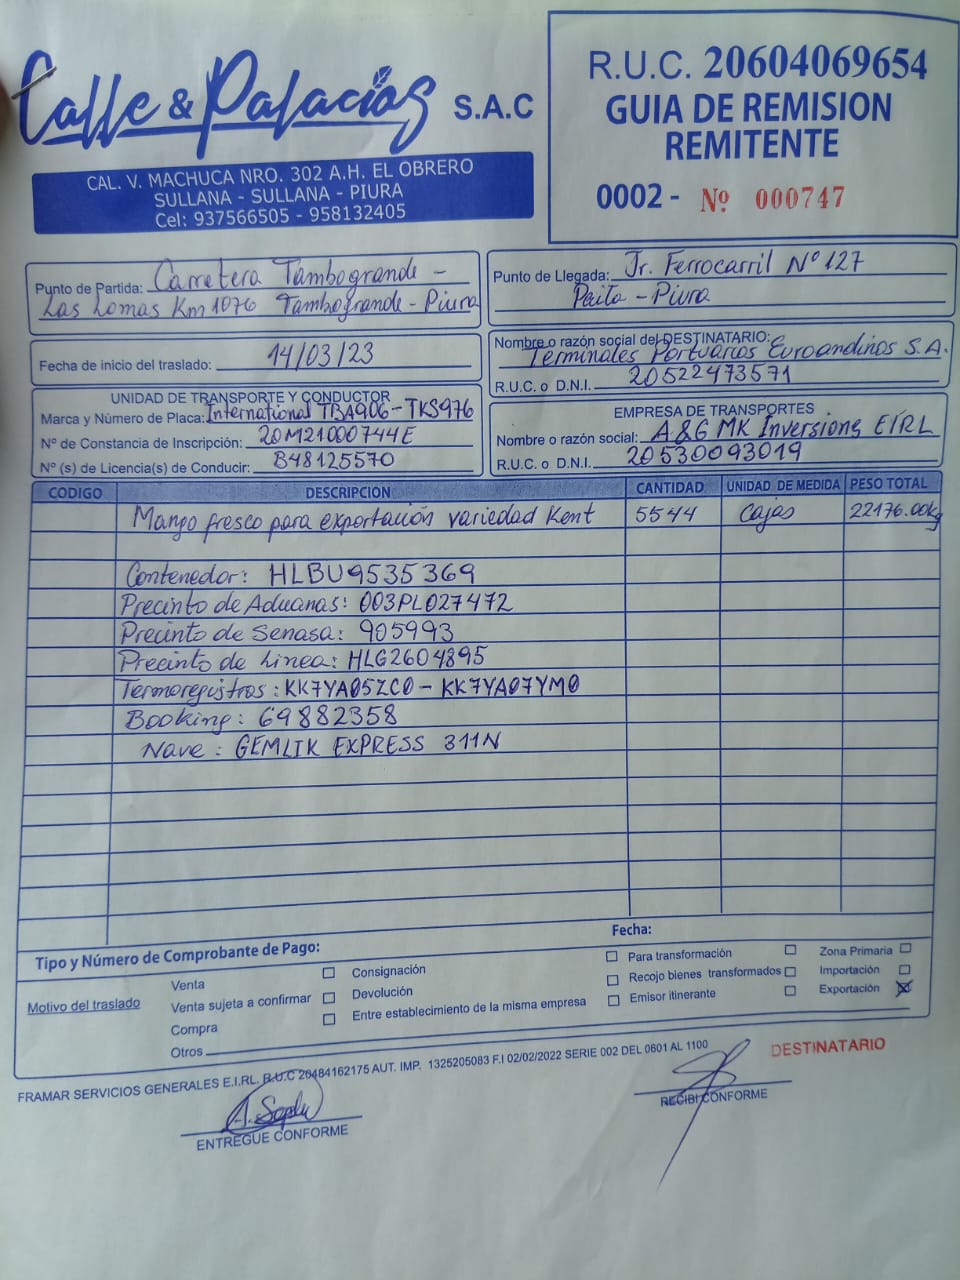 Calle & Palacios S.A.C
CAL. V. MACHUCA NRO. 302 A.H. EL OBRERO
SULLANA - SULLANA - PIURA
Cel: 937566505 - 958132405
R.U.C. 20604069654
GUIA DE REMISION
REMITENTE
0002 - Nº 000747
Punto de Partida: Carretera Tambogrande -
Las Lomas Km 1076 Tambogrande - Piura
Punto de Llegada: Jr. Ferrocarril Nº 127
Paita - Piura
Fecha de inicio del traslado: 14/03/23
Nombre o razón social del DESTINATARIO:
Terminales Portuarios Euroandinos S.A.
R.U.C. o D.N.I. 20522473571
UNIDAD DE TRANSPORTE Y CONDUCTOR
Marca y Número de Placa: International TBA906 - TKS976
Nº de Constancia de Inscripción: 20M21000744E
Nº (s) de Licencia(s) de Conducir: B48125570
EMPRESA DE TRANSPORTES
Nombre o razón social: A & G MK Inversions EIRL
R.U.C. o D.N.I. 20530093019
CODIGO DESCRIPCION CANTIDAD UNIDAD DE MEDIDA PESO TOTAL
Mango fresco para exportación variedad Kent 5544 Cajas 22176.00kg
Contenedor: HLBU9535369
Precinto de Aduanas: 003PL027472
Precinto de Senasa: 905993
Precinto de Linea: HLG2604895
Termoregistros: KK7YA05ZC0 - KK7YA07YM0
Booking: 69882358
Nave: GEMLIK EXPRESS 311N
Tipo y Número de Comprobante de Pago: Fecha:
Motivo del traslado
Venta
Venta sujeta a confirmar
Compra
Otros
Consignación
Devolución
Entre establecimiento de la misma empresa
Para transformación
Recojo bienes transformados
Emisor itinerante
Zona Primaria
Importación
Exportación X
FRAMAR SERVICIOS GENERALES E.I.RL. R.U.C 20484162175 AUT. IMP. 1325205083 F.I 02/02/2022 SERIE 002 DEL 0601 AL 1100
DESTINATARIO
ENTREGUE CONFORME
RECIBI CONFORME